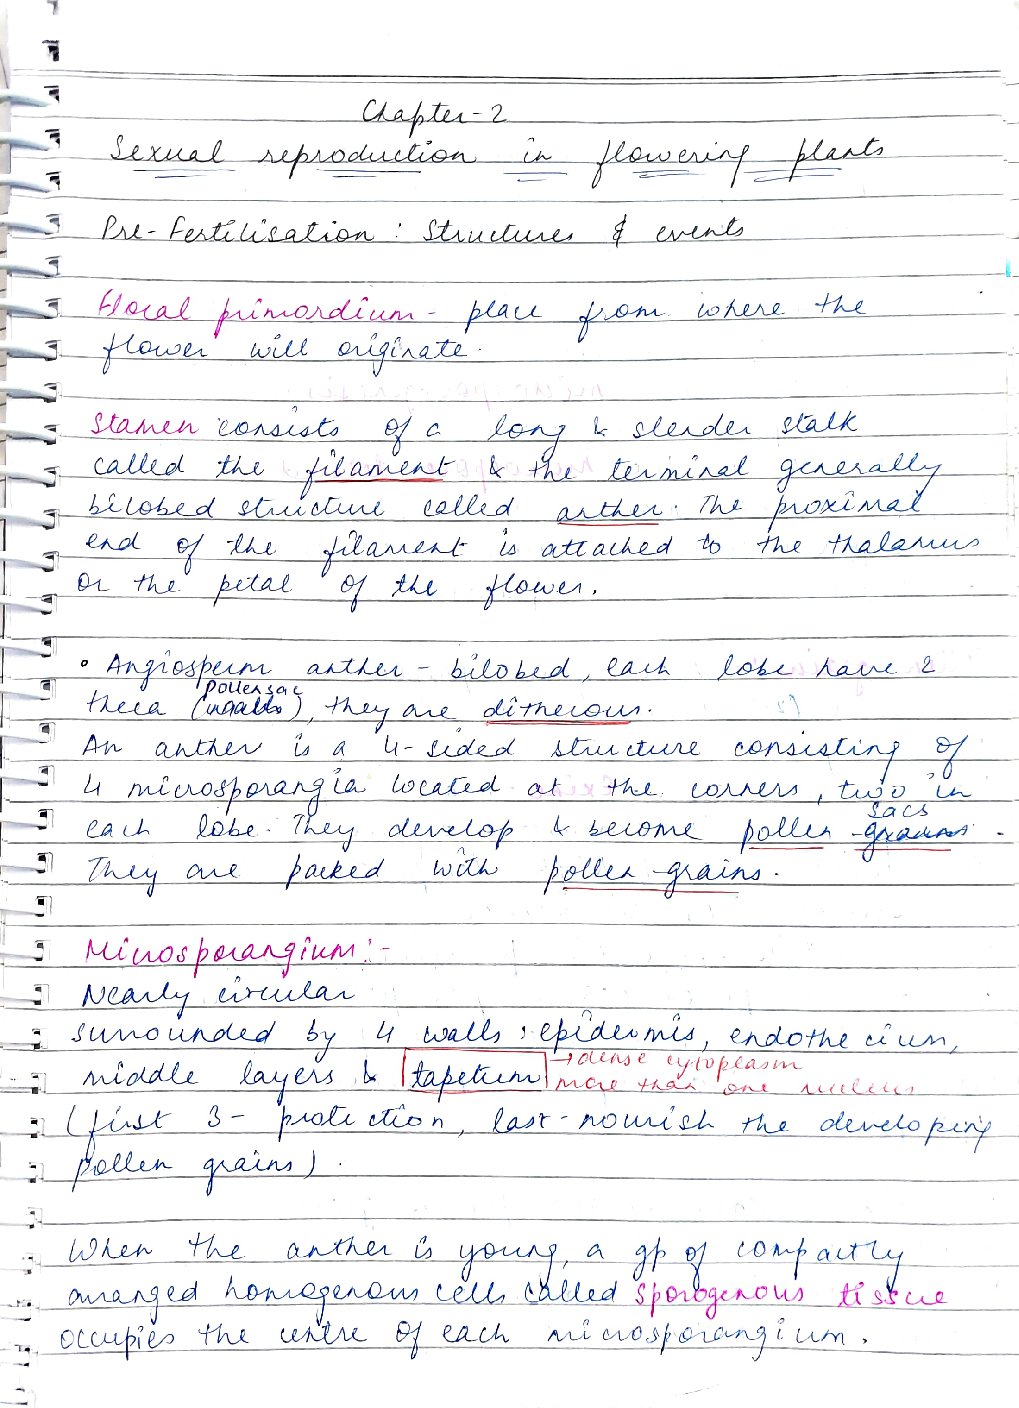 Chapter-2
Sexual reproduction in flowering plants
Pre-Fertilisation : Structures & events
Floral primordium - place from where the
flower will originate.
Stamen consists of a long & slender stalk
called the filament & the terminal generally
bilobed structure called anther. The proximal
end of the filament is attached to the thalamus
or the petal of the flower.
• Angiosperm anther - bilobed, each lobe have 2
pollensac
theca (), they are ditheous.
An anther is a 4-sided structure consisting of
4 microsporangia located at the corners, two in
sacs
each lobe. They develop & become pollen grains.
They are packed with pollen grains.
Microsporangium:-
Nearly circular
surrounded by 4 walls : epidermis, endothecium,
middle layers & tapetum → dense cytoplasm
more than one nucleus
(first 3 - protection, last-nourish the developing
pollen grains).
When the anther is young, a gp of compactly
arranged homogenous cells called sporogenous tissue
occupies the centre of each microsporangium.